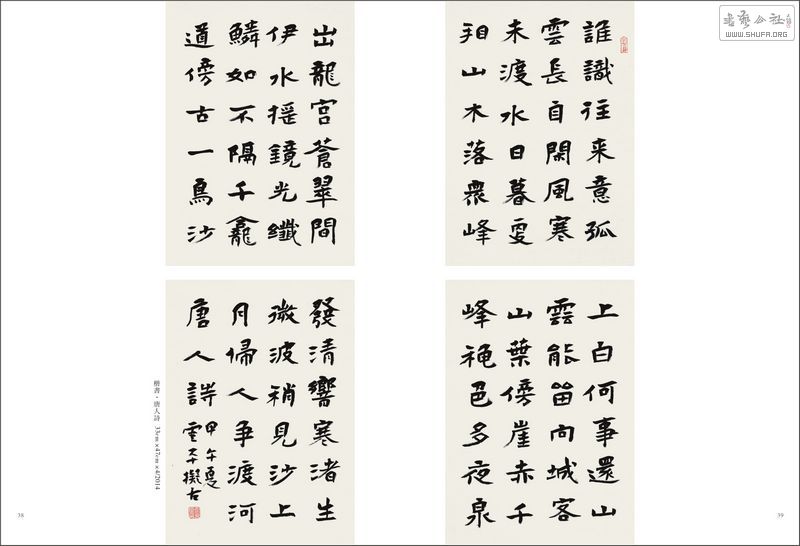 書藝公社
WWW.SHUFA.ORG
誰識往来意孤
雲長自閑風寒
未渡水日暮更
看山木落眾峰
出龍宮蒼翠間
伊水摇鏡光纖
鱗如不隔千龕
道傍古一鳥沙
上白何事還山
雲能留向城客
山葉傍崖赤千
峰穐色多夜泉
發清響寒渚生
微波稍見沙上
月歸人爭渡河
唐人詩
甲午夏
雲擬古
楷書·唐人詩 33cm×47cm×4/2014
38
39